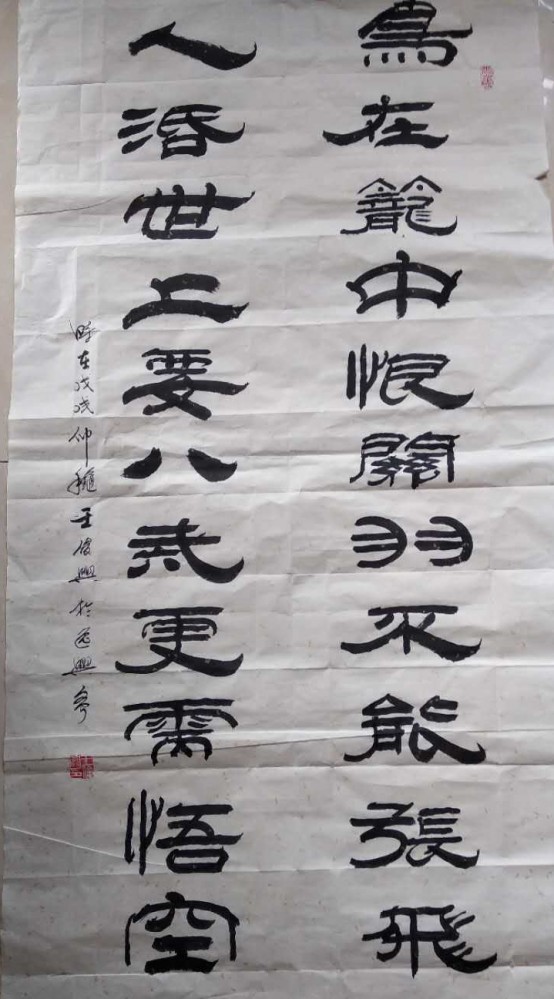 鳥在籠中恨關羽不能張飛
人活世上要八戒更需悟空
時在戊戌仲穐王俊興於逸興齋